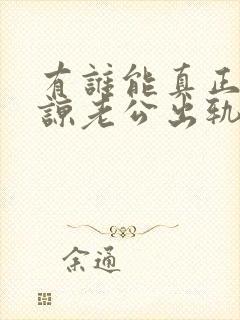 有誰能真正
諒老公出軌
余通